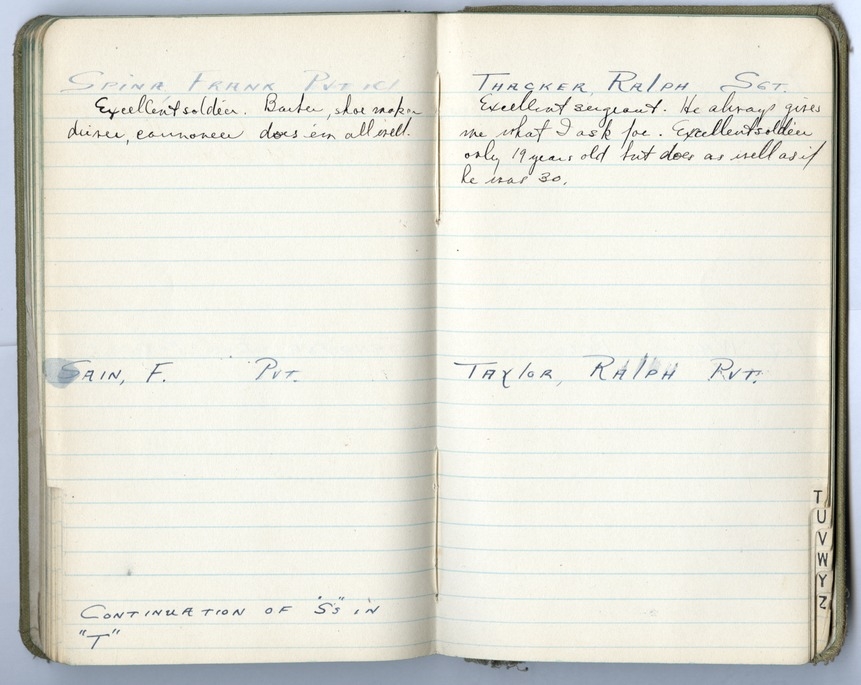 Spina, Frank Pvt 1cl
Excellent soldier. Barber, shoe maker
driver, cannoneer does em all well.
Sain, F. Pvt.
Continuation of "S"s in
"T"
Thacker, Ralph Sgt.
Excellent sergeant. He always gives
me what I ask for. Excellent soldier
only 19 years old but does as well as if
he was 30.
Taylor, Ralph Pvt.
T
U
V
W
Y
Z